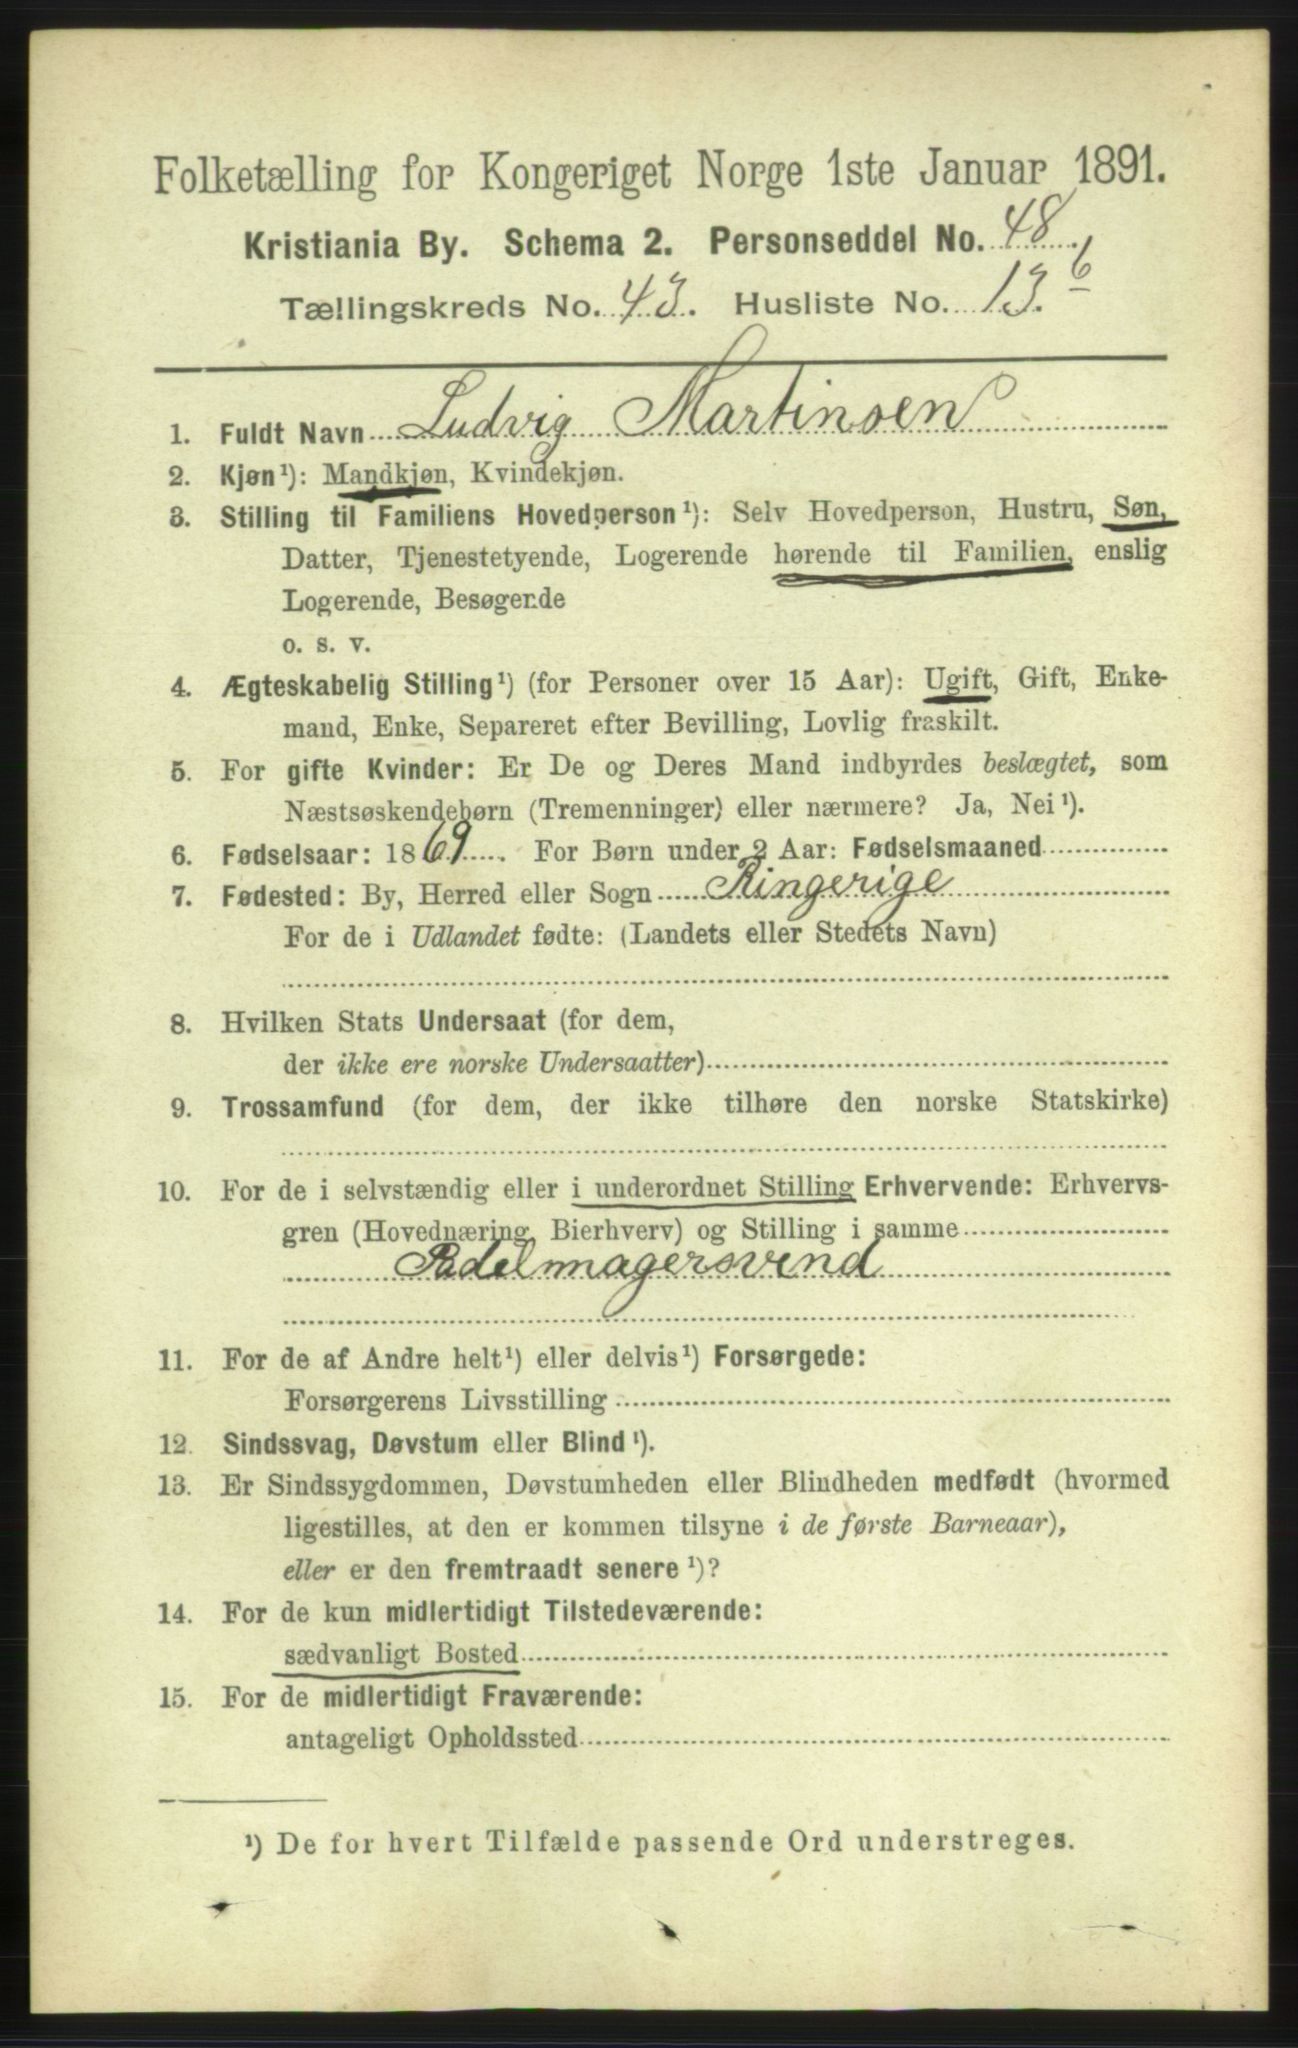 Folketælling for Kongeriget Norge 1ste Januar 1891.
Kristiania By. Schema 2. Personseddel No. 48.
Tællingskreds No. 43. Husliste No. 13. b
1. Fuldt Navn Ludvig Martinsen
2. Kjøn¹): Mandkjøn, Kvindekjøn.
3. Stilling til Familiens Hovedperson¹): Selv Hovedperson, Hustru, Søn,
Datter, Tjenestetyende, Logerende hørende til Familien, enslig
Logerende, Besøgende
o. s. v.
4. Ægteskabelig Stilling¹) (for Personer over 15 Aar): Ugift, Gift, Enke-
mand, Enke, Separeret efter Bevilling, Lovlig fraskilt.
5. For gifte Kvinder: Er De og Deres Mand indbyrdes beslægtet, som
Næstsøskendebørn (Tremenninger) eller nærmere? Ja, Nei¹).
6. Fødselsaar: 1869. For Børn under 2 Aar: Fødselsmaaned
7. Fødested: By, Herred eller Sogn Ringerige
For de i Udlandet fødte: (Landets eller Stedets Navn)
8. Hvilken Stats Undersaat (for dem,
der ikke ere norske Undersaatter)
9. Trossamfund (for dem, der ikke tilhøre den norske Statskirke)
10. For de i selvstændig eller i underordnet Stilling Erhvervende: Erhvervs-
gren (Hovednæring, Bierhverv) og Stilling i samme
Sadelmagersvend
11. For de af Andre helt¹) eller delvis¹) Forsørgede:
Forsørgerens Livsstilling
12. Sindssvag, Døvstum eller Blind¹).
13. Er Sindssygdommen, Døvstumheden eller Blindheden medfødt (hvormed
ligestilles, at den er kommen tilsyne i de første Barneaar),
eller er den fremtraadt senere¹)?
14. For de kun midlertidigt Tilstedeværende:
sædvanligt Bosted
15. For de midlertidigt Fraværende:
antageligt Opholdssted
¹) De for hvert Tilfælde passende Ord understreges.